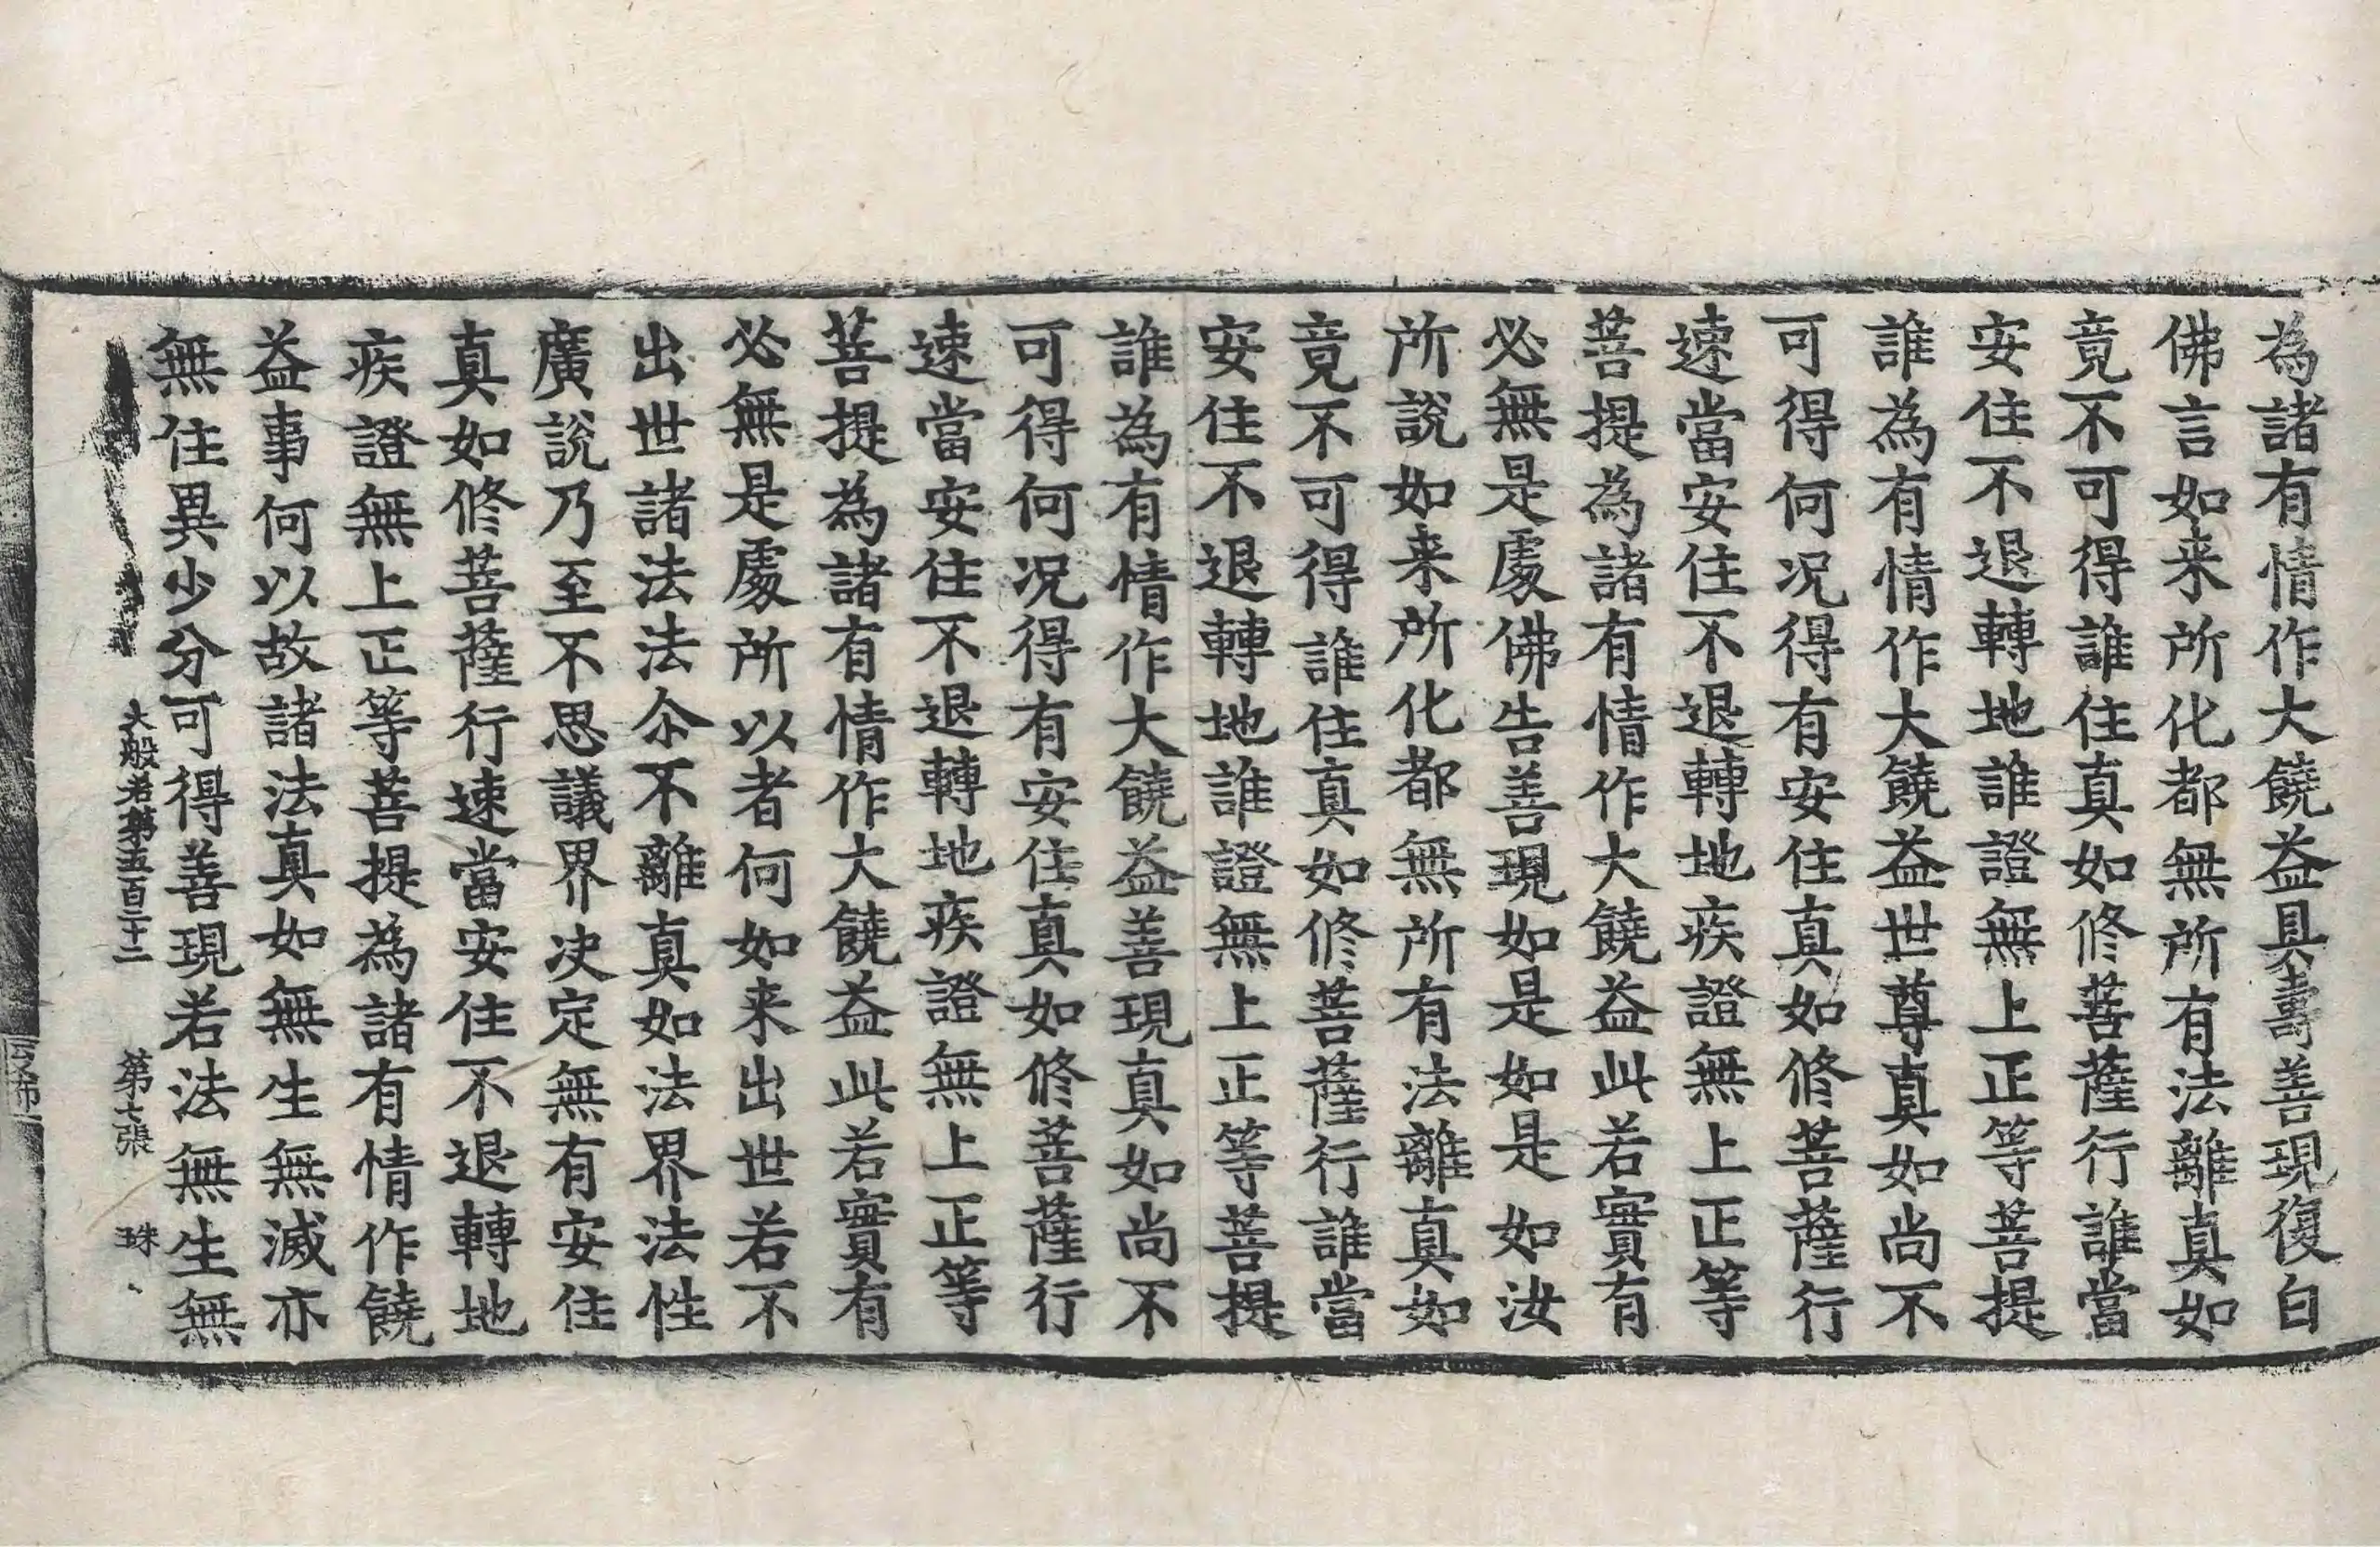 為諸有情作大饒益具壽善現復白
佛言如来所化都無所有法離真如
竟不可得誰住真如修菩薩行誰當
安住不退轉地誰證無上正等菩提
誰為有情作大饒益世尊真如尚不
可得何况得有安住真如修菩薩行
速當安住不退轉地疾證無上正等
菩提為諸有情作大饒益此若實有
必無是處佛告善現如是如是如汝
所說如来所化都無所有法離真如
竟不可得誰住真如修菩薩行誰當
安住不退轉地誰證無上正等菩提
誰為有情作大饒益善現真如尚不
可得何况得有安住真如修菩薩行
速當安住不退轉地疾證無上正等
菩提為諸有情作大饒益此若實有
必無是處所以者何如来出世若不
出世諸法法尒不離真如法界法性
廣說乃至不思議界决定無有安住
真如修菩薩行速當安住不退轉地
疾證無上正等菩提為諸有情作饒
益事何以故諸法真如無生無滅亦
無住異少分可得善現若法無生無
大般若第五百二十二 第七張 珠